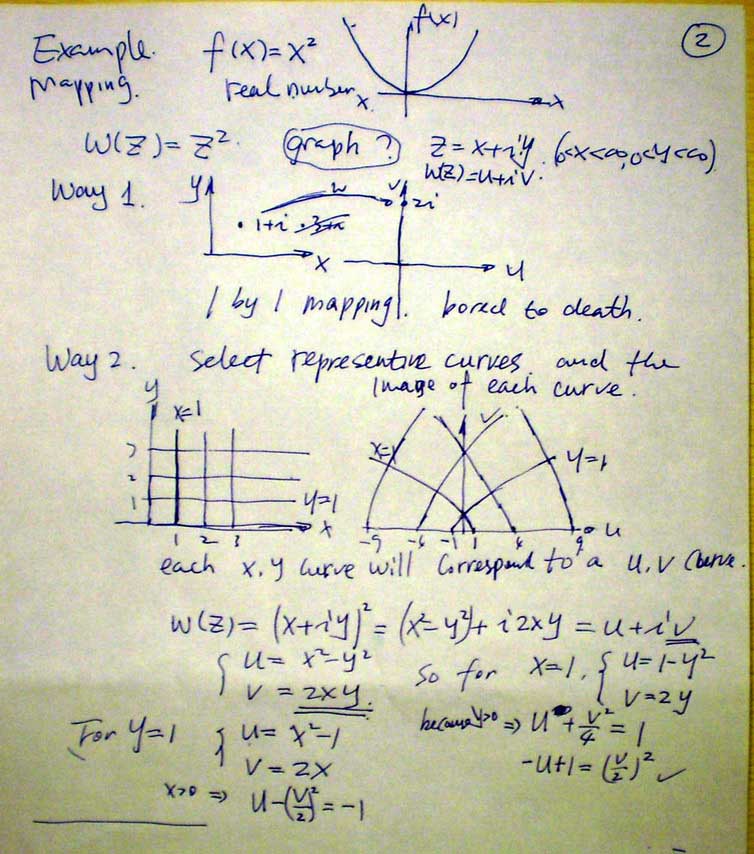 ②
Example.
Mapping.
f(x) = x²
real number.
f(x)
x
x
W(Z) = Z².
graph?
Z = x+iy. (0<x<∞, 0<y<∞)
W(Z) = u+iv.
Way 1.
y
x
1+i
w
v
2i
u
1 by 1 mapping. bored to death.
Way 2. select representive curves and the
Image of each curve.
y
x=1
3
2
1
y=1
x
1 2 3
v
x=1
y=1
-9 -4 -1 1 4 9 u
each x, y curve will correspond to a u, v curve.
W(Z) = (x+iy)² = (x²-y²) + i2xy = u+iv
{ u = x²-y²
v = 2xy.
so for x=1, { u = 1-y²
v = 2y
because y>0 ⇒ u + v²/4 = 1
-u+1 = (v/2)² ✓
For y=1 { u = x²-1
v = 2x
x>0 ⇒ u-(v/2)² = -1